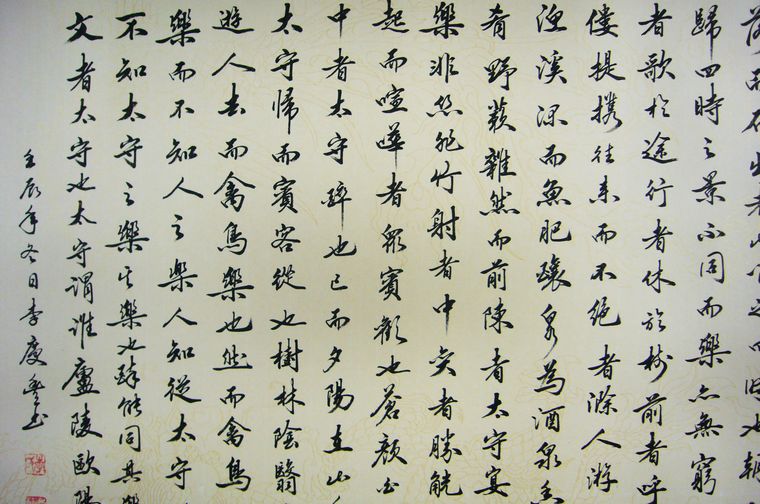 落而石出者山間之四時也朝
歸四時之景不同而樂亦無窮
者歌於途行者休於樹前者呼
僂提攜往來而不絕者滁人遊
漁溪深而魚肥釀泉為酒泉香
肴野蔌雜然而前陳者太守宴
樂非絲非竹射者中奕者勝觥
起而喧嘩者眾賓歡也蒼顏白
中者太守醉也已而夕陽在山
太守帰而賓客從也樹林陰翳
遊人去而禽鳥樂也然而禽鳥
樂而不知人之樂人知從太守
不知太守之樂其樂也醉能同其樂
文者太守也太守謂誰廬陵歐陽
壬辰年冬日李慶豐書